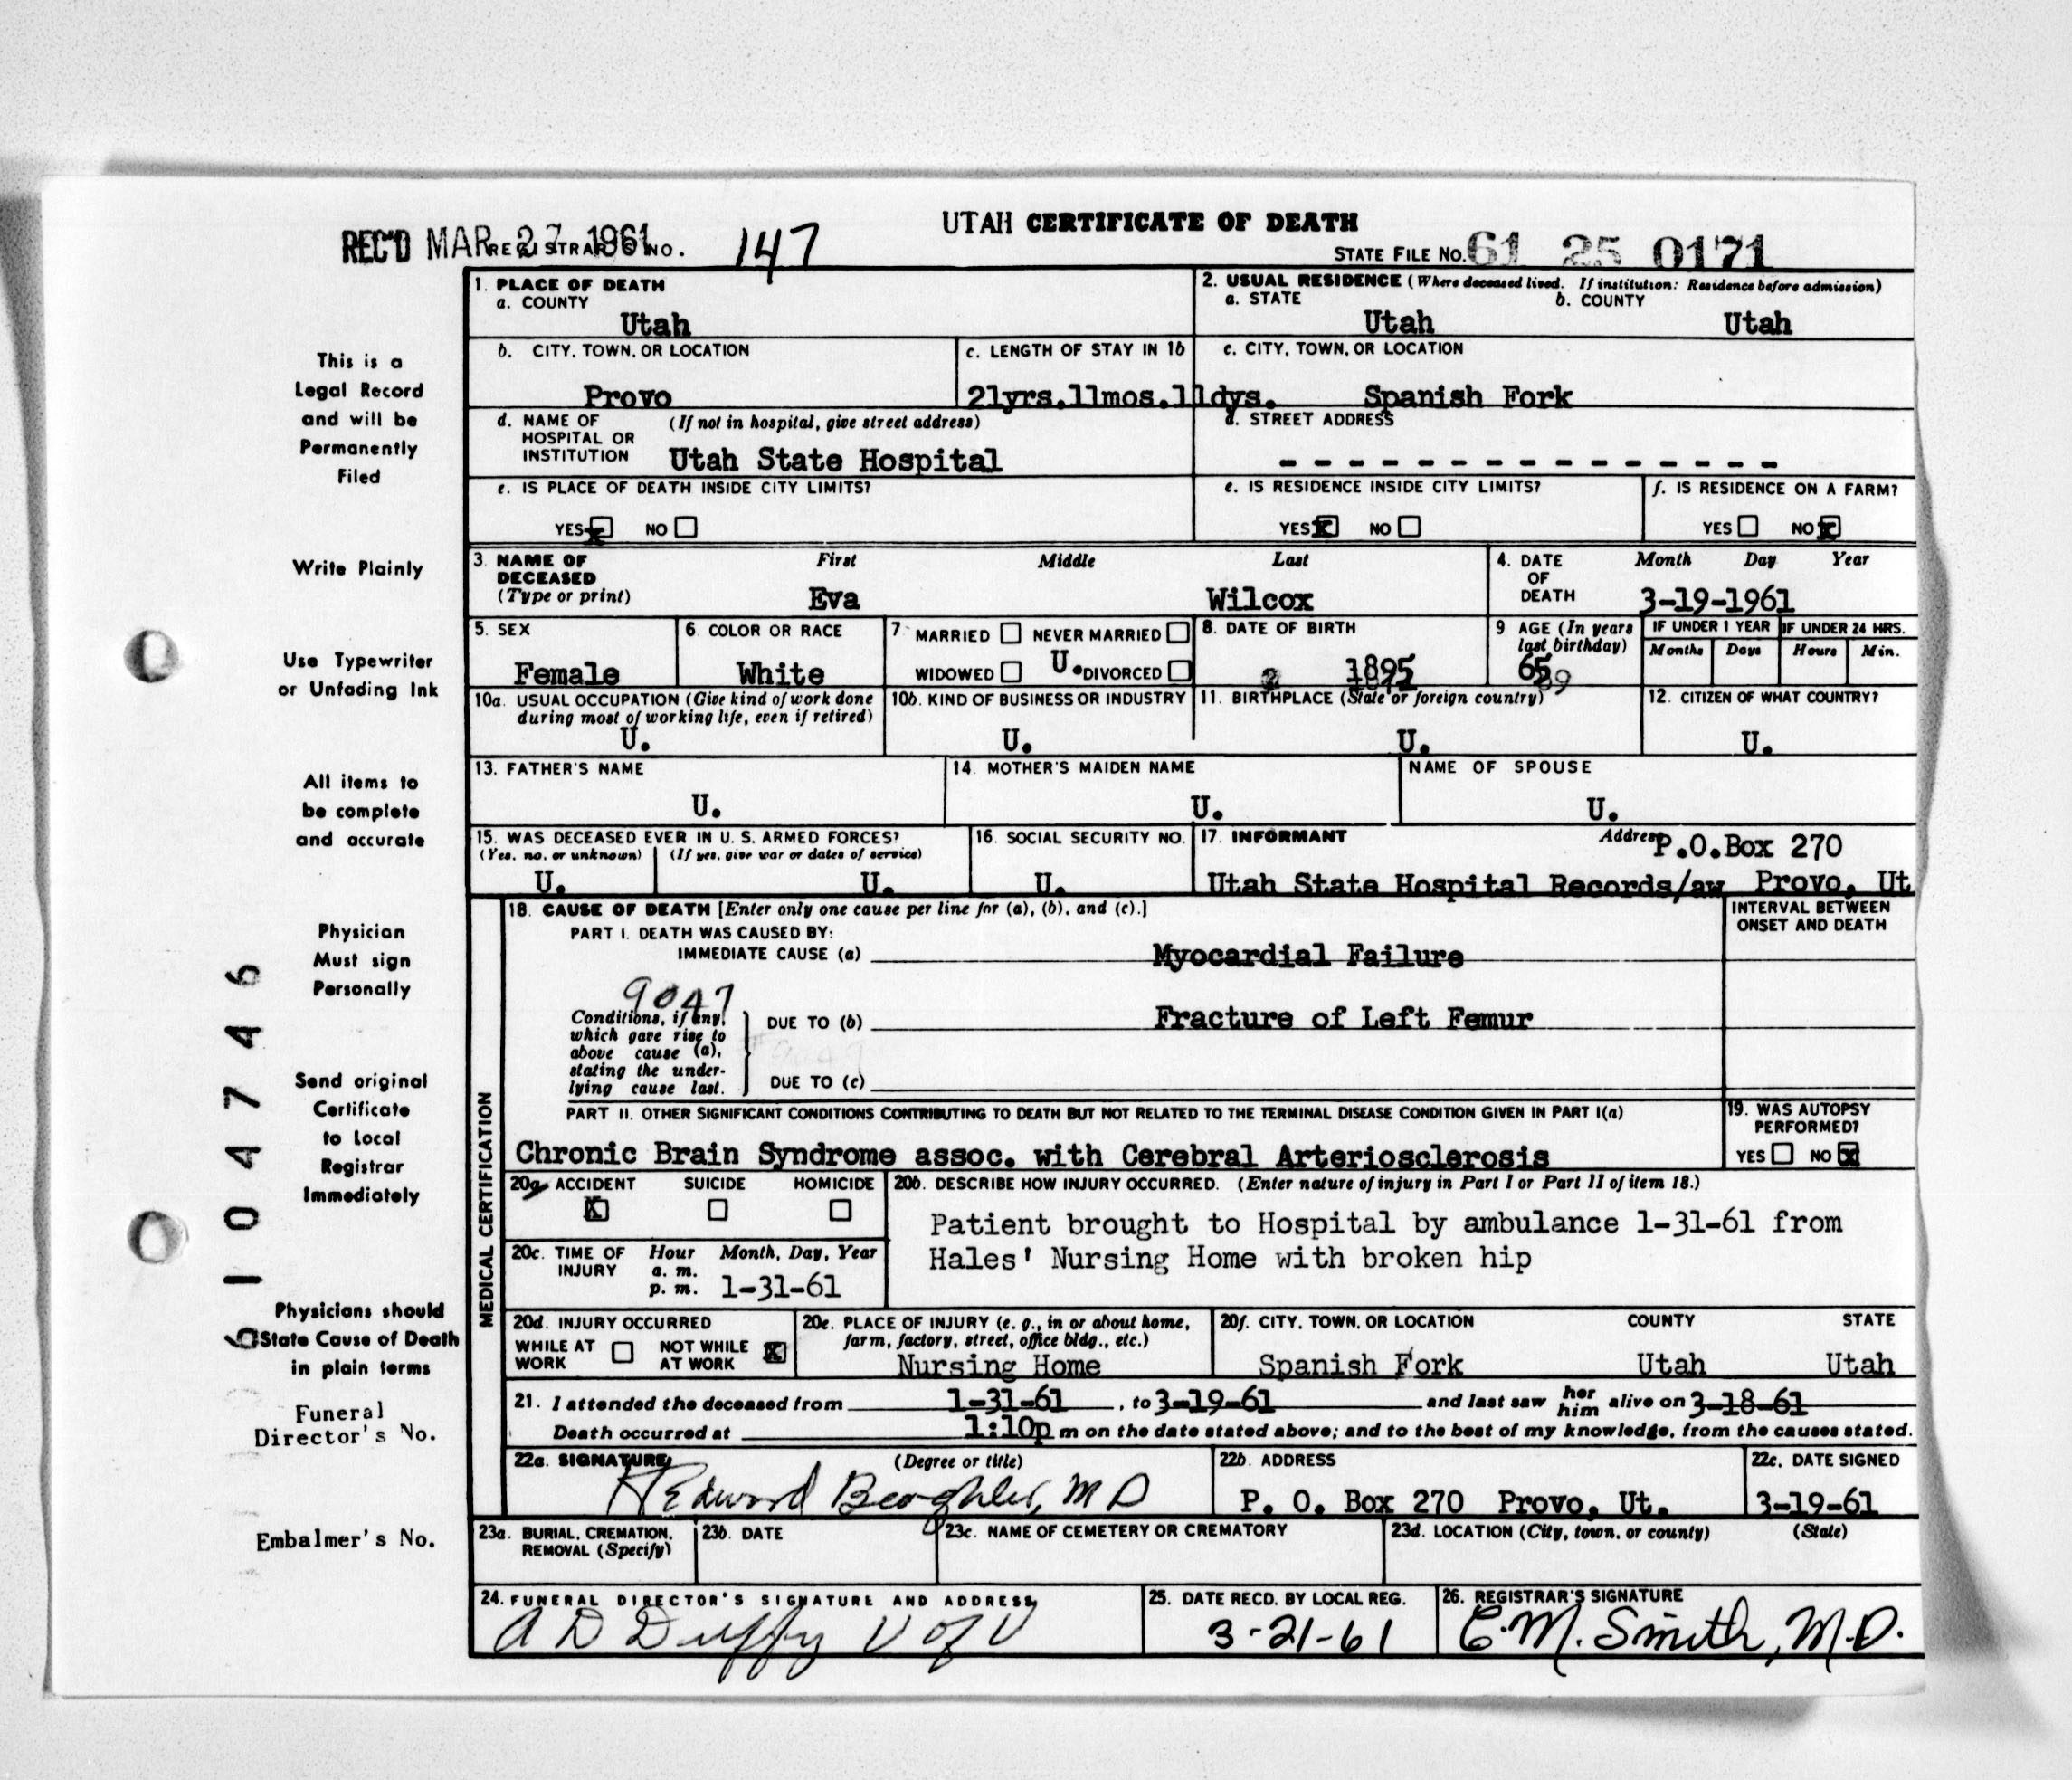 UTAH CERTIFICATE OF DEATH
REC'D MAR 27 1961 REGISTRAR'S NO. 147 STATE FILE NO. 61 25 0171
This is a
Legal Record
and will be
Permanently
Filed
Write Plainly
Use Typewriter
or Unfading Ink
All items to
be complete
and accurate
Physician
Must sign
Personally
Send original
Certificate
to Local
Registrar
Immediately
Physicians should
State Cause of Death
in plain terms
Funeral
Director's No.
Embalmer's No.
6104746
1. PLACE OF DEATH
a. COUNTY
Utah
2. USUAL RESIDENCE (Where deceased lived. If institution: Residence before admission)
a. STATE b. COUNTY
Utah Utah
b. CITY, TOWN, OR LOCATION
Provo
c. LENGTH OF STAY IN 1b
21yrs.11mos.11dys.
c. CITY, TOWN, OR LOCATION
Spanish Fork
d. NAME OF (If not in hospital, give street address)
HOSPITAL OR
INSTITUTION Utah State Hospital
d. STREET ADDRESS
- - - - - - - - - - - - - - -
e. IS PLACE OF DEATH INSIDE CITY LIMITS?
YES x NO
e. IS RESIDENCE INSIDE CITY LIMITS?
YES x NO
f. IS RESIDENCE ON A FARM?
YES NO x
3. NAME OF First Middle Last
DECEASED
(Type or print) Eva Wilcox
4. DATE Month Day Year
OF
DEATH 3-19-1961
5. SEX
Female
6. COLOR OR RACE
White
7. MARRIED NEVER MARRIED
WIDOWED U. DIVORCED
8. DATE OF BIRTH
1895
9 AGE (In years
last birthday)
65
IF UNDER 1 YEAR IF UNDER 24 HRS.
Months Days Hours Min.
10a. USUAL OCCUPATION (Give kind of work done
during most of working life, even if retired)
U.
10b. KIND OF BUSINESS OR INDUSTRY
U.
11. BIRTHPLACE (State or foreign country)
U.
12. CITIZEN OF WHAT COUNTRY?
U.
13. FATHER'S NAME
U.
14. MOTHER'S MAIDEN NAME
U.
NAME OF SPOUSE
U.
15. WAS DECEASED EVER IN U. S. ARMED FORCES?
(Yes, no, or unknown) (If yes, give war or dates of service)
U. U.
16. SOCIAL SECURITY NO.
U.
17. INFORMANT Address P.O.Box 270
Utah State Hospital Records/aw Provo, Ut
MEDICAL CERTIFICATION
18. CAUSE OF DEATH [Enter only one cause per line for (a), (b), and (c).]
PART I. DEATH WAS CAUSED BY:
IMMEDIATE CAUSE (a) Myocardial Failure
INTERVAL BETWEEN
ONSET AND DEATH
9047
Conditions, if any,
which gave rise to
above cause (a),
stating the under-
lying cause last.
DUE TO (b) Fracture of Left Femur
DUE TO (c)
PART II. OTHER SIGNIFICANT CONDITIONS CONTRIBUTING TO DEATH BUT NOT RELATED TO THE TERMINAL DISEASE CONDITION GIVEN IN PART I(a)
Chronic Brain Syndrome assoc. with Cerebral Arteriosclerosis
19. WAS AUTOPSY
PERFORMED?
YES NO x
20a. ACCIDENT SUICIDE HOMICIDE
X
20b. DESCRIBE HOW INJURY OCCURRED. (Enter nature of injury in Part I or Part II of item 18.)
Patient brought to Hospital by ambulance 1-31-61 from
Hales' Nursing Home with broken hip
20c. TIME OF Hour Month, Day, Year
INJURY a. m.
p. m. 1-31-61
20d. INJURY OCCURRED
WHILE AT NOT WHILE X
WORK AT WORK
20e. PLACE OF INJURY (e. g., in or about home,
farm, factory, street, office bldg., etc.)
Nursing Home
20f. CITY, TOWN, OR LOCATION COUNTY STATE
Spanish Fork Utah Utah
21. I attended the deceased from 1-31-61, to 3-19-61 and last saw her him alive on 3-18-61
Death occurred at 1:10p m on the date stated above; and to the best of my knowledge, from the causes stated.
22a. SIGNATURE (Degree or title)
Edward Beaghler, MD
22b. ADDRESS
P. O. Box 270 Provo, Ut.
22c. DATE SIGNED
3-19-61
23a. BURIAL, CREMATION,
REMOVAL (Specify)
23b. DATE
23c. NAME OF CEMETERY OR CREMATORY
23d. LOCATION (City, town, or county) (State)
24. FUNERAL DIRECTOR'S SIGNATURE AND ADDRESS
A D Duffy U of U
25. DATE RECD. BY LOCAL REG.
3-21-61
26. REGISTRAR'S SIGNATURE
C.M. Smith, M.D.